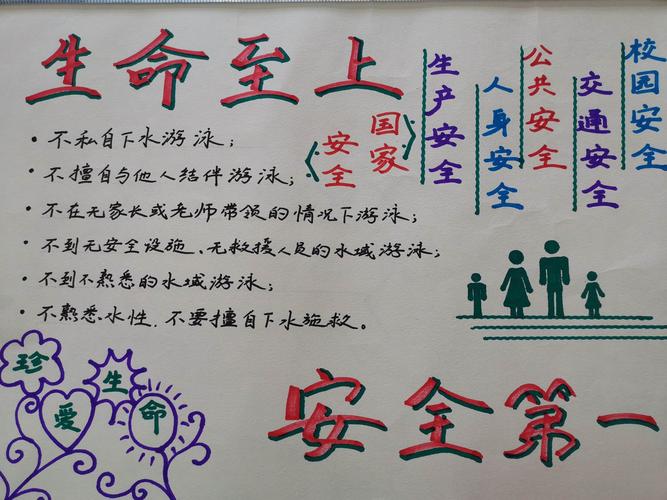 生命至上
• 不私自下水游泳；
• 不擅自与他人结伴游泳；
• 不在无家长或老师带领的情况下游泳；
• 不到无安全设施、无救援人员的水域游泳；
• 不到不熟悉的水域游泳；
• 不熟悉水性，不要擅自下水施救。
《国家安全》
生产安全
人身安全
公共安全
交通安全
校园安全
珍爱生命
安全第一